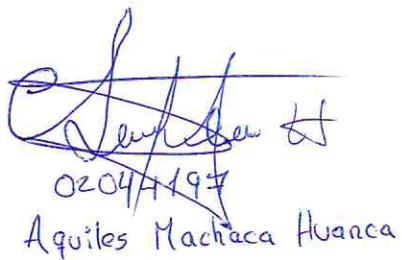 02044197
Aquiles Machaca Huanca